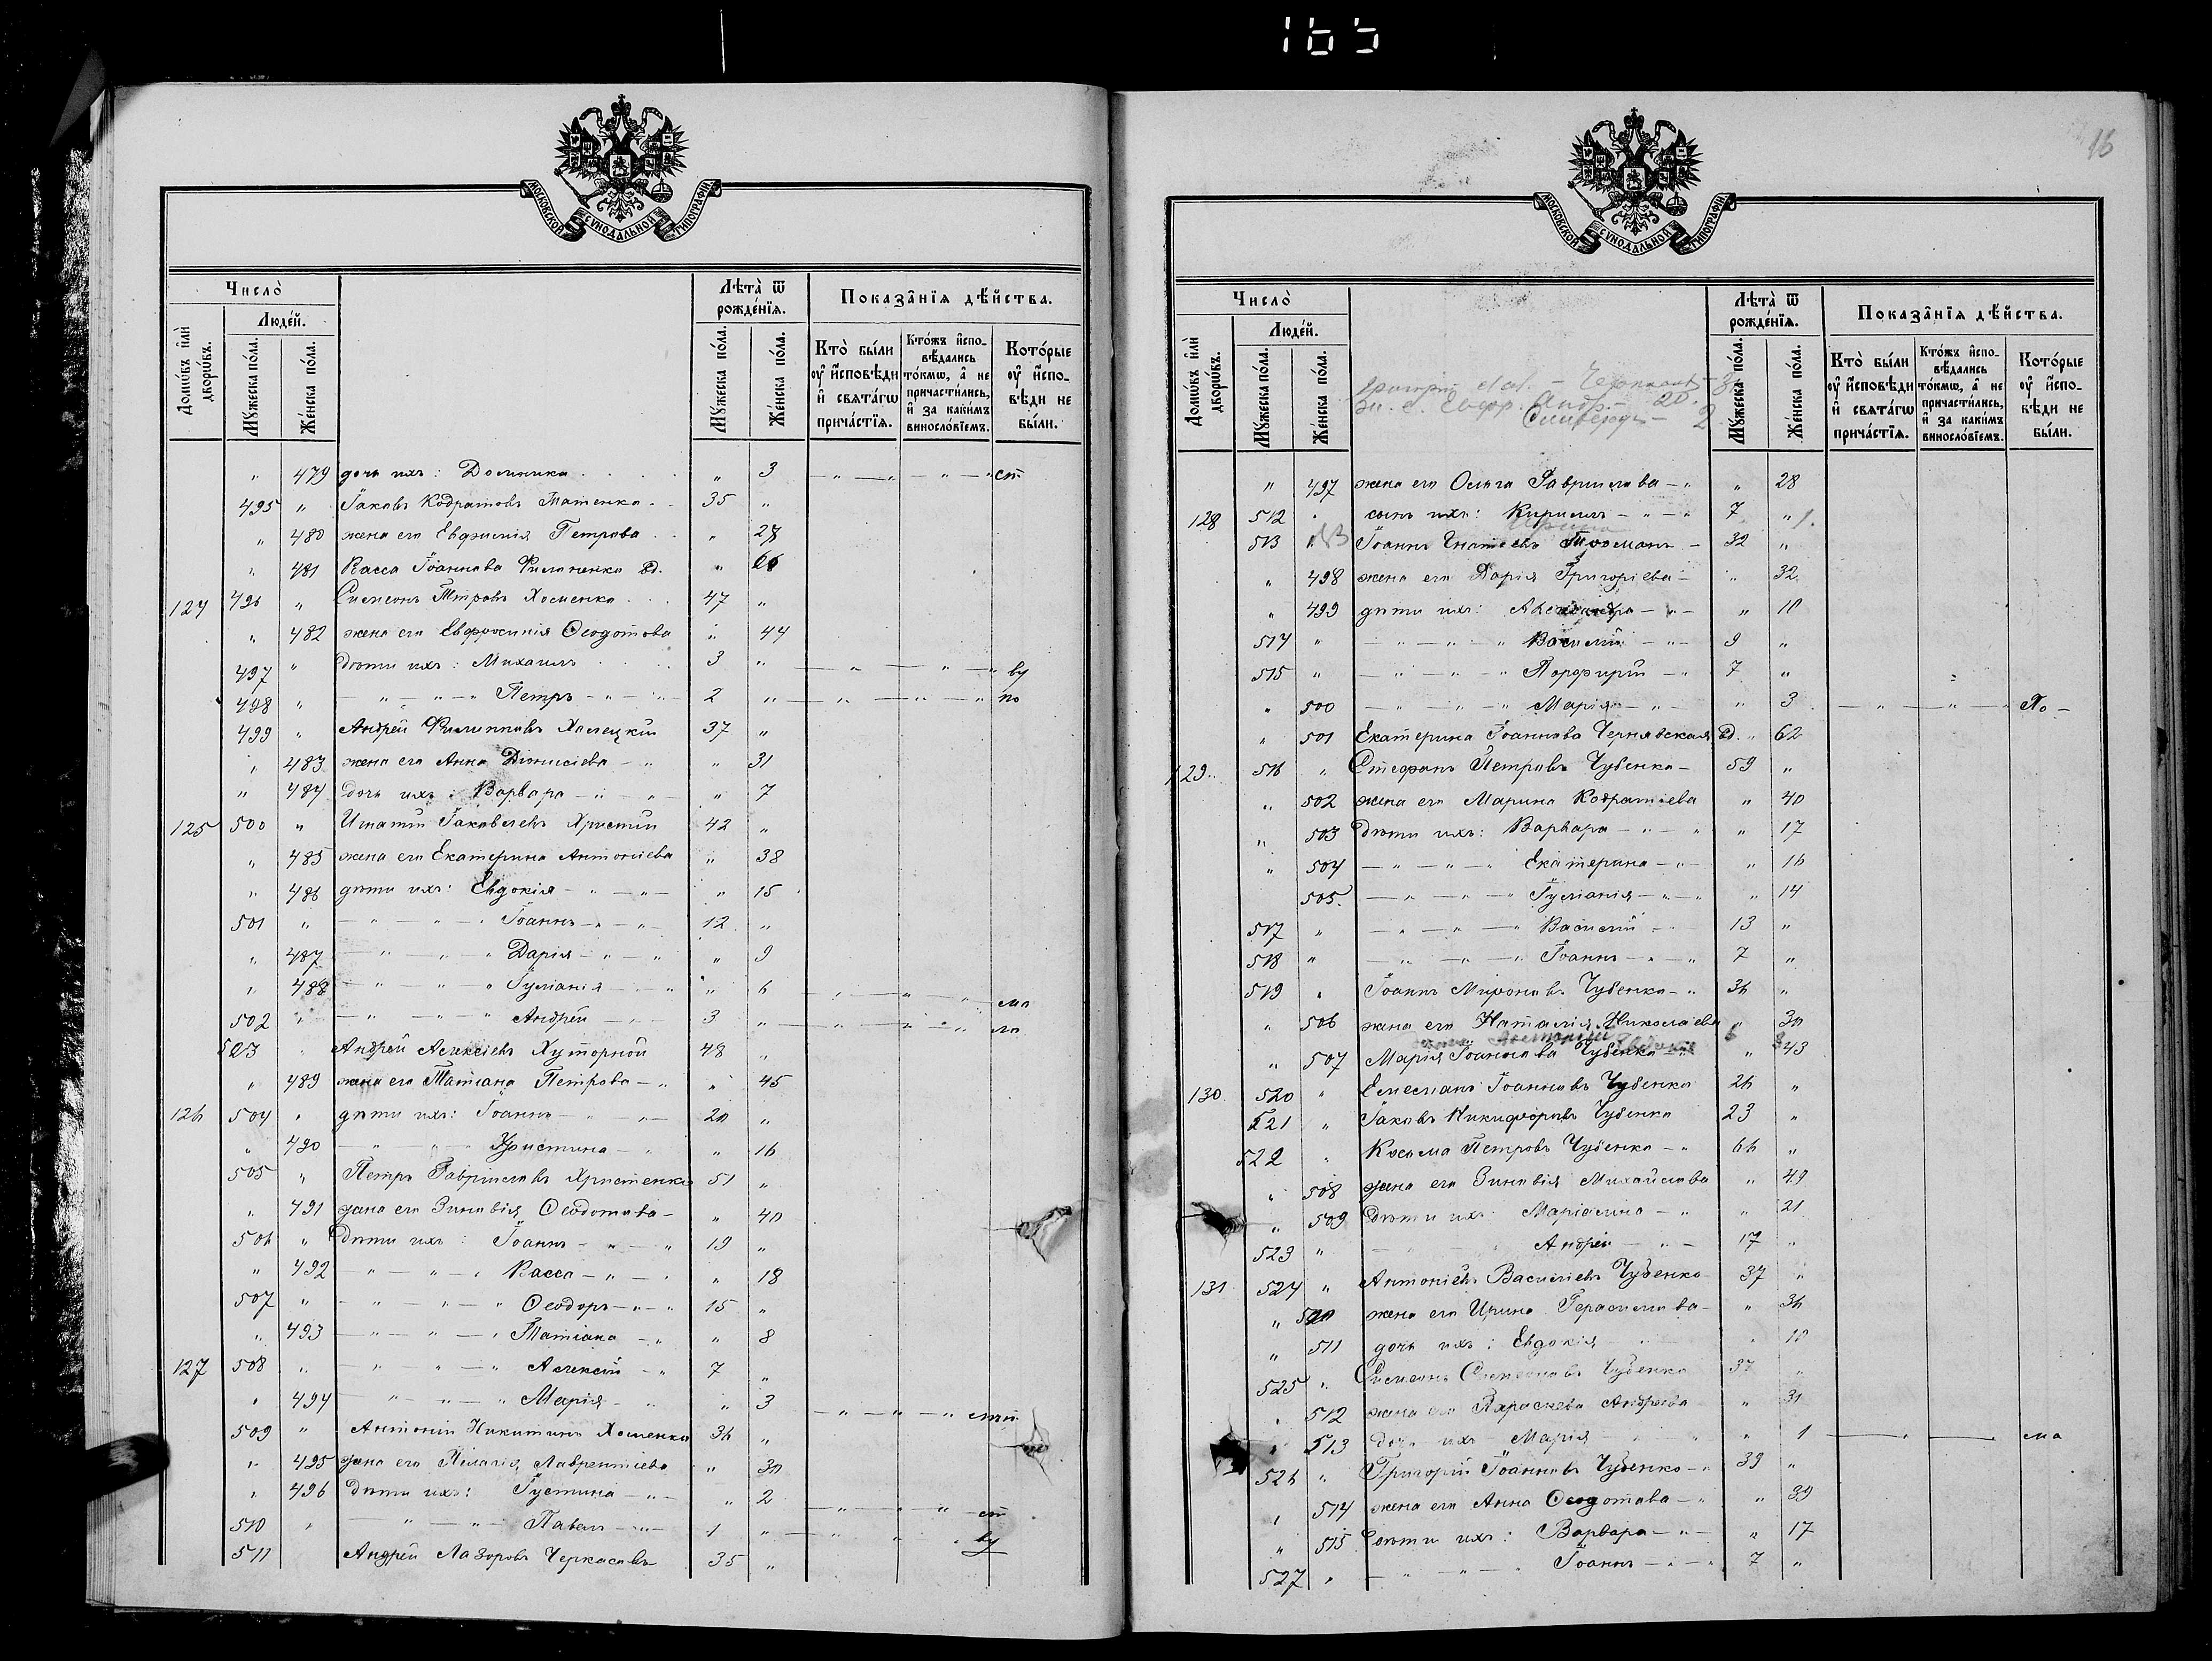 165
МОСКОВСКОЙ СѴНОДАЛЬНОЙ ТИПОГРАФІИ
Число̀
Люде́й.
Домѡ́въ и҆лѝ дворѡ́въ.
Мꙋ́жеска по́ла.
Же́нска по́ла.
Лѣ́та ѿ рожде́нїѧ.
Мꙋ́жеска по́ла.
Же́нска по́ла.
Показа̑нїѧ дѣ́йства.
Кто̀ бы́ли ᲂу҆ и҆́сповѣди и҆ свѧта́гѡ прича́стїѧ.
Кто́жъ и҆спо-вѣ́дались то́кмѡ, а҆ не причасти́лись, и҆ за каки́мъ виносло́вїемъ.
Кото́рые ᲂу҆ и҆́спо-вѣди не бы́ли.
" 479 дочь ихъ: Домника " 3
495 " Іаковъ Кодратовъ Татенко 35 "
" 480 жена его Евфимія Петрова " 27
" 481 Васса Іоаннова Филоненко вд. "
124 496 " Симеонъ Петровъ Хоменко 47 "
" 482 жена его Евфросинія Ѳеодотова " 44
497 " дѣти ихъ: Михаилъ 3 "
498 " — " — " Петръ — " 2 "
499 " Андрей Филипповъ 37 "
" 483 жена его Анна Діонисіева — " " 31
" 484 дочь ихъ: Варвара — " — " " 7
125 500 " Игнатій Іаковлевъ 42 "
" 485 жена его Екатерина Антоніева " 38
" 486 дѣти ихъ: Евдокія — " — " " 15
501 " — " — " Іоаннъ — " — " 12 "
" 487 — " — " Дарія — " — " " 9
" 488 — " — " Іуліанія — " " 6
502 " — " — " Андрей — " 3 "
503 " Андрей Алексіевъ Хуторной 48 "
" 489 жена его Татіана Петрова — " " 45
126 504 " дѣти ихъ: Іоаннъ — " — " 20 "
" 490 — " — " Христина — " " 16
505 " Петръ Гавриловъ Христенко 51 "
" 491 жена его Зиновія Ѳеодотова — " 40
506 " дѣти ихъ: Іоаннъ — " — " 19 "
" 492 — " — " Васса — " — " " 18
507 " — " — " Ѳеодоръ — " — " 15 "
" 493 — " — " Татіана — " " 8
127 508 " — " — " Алексій — " 7 "
" 494 — " — " Марія — " " 3
509 " Антоній Никитинъ Хоменко 36 "
" 495 жена его Пелагія Лаврентіева " 30
" 496 дѣти ихъ: Іустина — " — " 2
510 " — " — " Павелъ — " 1 "
511 Андрей Лазоровъ Черкасовъ 35 "
16
МОСКОВСКОЙ СѴНОДАЛЬНОЙ ТИПОГРАФІИ
Число̀
Люде́й.
Домѡ́въ и҆лѝ дворѡ́въ.
Мꙋ́жеска по́ла.
Же́нска по́ла.
Лѣ́та ѿ рожде́нїѧ.
Мꙋ́жеска по́ла.
Же́нска по́ла.
Показа̑нїѧ дѣ́йства.
Кто̀ бы́ли ᲂу҆ и҆́сповѣди и҆ свѧта́гѡ прича́стїѧ.
Кто́жъ и҆спо-вѣ́дались то́кмѡ, а҆ не причасти́лись, и҆ за каки́мъ виносло́вїемъ.
Кото́рые ᲂу҆ и҆́спо-вѣди не бы́ли.
" 497 жена его Ольга Гавриилова — " " 28
128 512 " сынъ ихъ: Кириллъ — " — " 7 "
513 " Іоаннъ Игнатіевъ 32 "
" 498 жена его Дарія Григоріева — " 32
" 499 дѣти ихъ: Александра — " — " 10
514 " — " — " Василій — " 9 "
515 " — " — " Порфирій — " 7 "
" 500 — " — " Марія — " — " 3
" 501 Екатерина Іоаннова Чернявская вд. " 62
129 516 " Стефанъ Петровъ Чубенко — 59 "
" 502 жена его Марина Кодратіева " 40
" 503 дѣти ихъ: Варвара — " — " " 17
" 504 — " — " Екатерина — " — " 16
505 — " — " Іуліанія — " — " " 14
517 " — " — " Василій — " 13 "
518 " — " — " Іоаннъ — " — " 7 "
519 " Іоаннъ Мироновъ Чубенко — " 36 "
" 506 жена его Наталія Николаева " 30
" 507 Марія Іоаннова Чубенко " 43
130 520 " Емеліанъ Іоанновъ Чубенко 26 "
521 " Іаковъ Никифоровъ Чубенко 23 "
522 " Косьма Петровъ Чубенко — " 66 "
" 508 жена его Зиновія Михайлова " 49
" 509 дѣти ихъ: Маріамна — " " 21
523 " — " Андрей — " — 17 "
131 524 " Антоніевъ Василіевъ Чубенко 37 "
" 510 жена его Ирина Герасимова — " 36
" 511 дочь ихъ: Евдокія " 10
525 " Симеонъ Симеоновъ Чубенко 37 "
" 512 жена его Параскева Андреева " 31
" 513 дочь ихъ Марія " 1
526 " Григорій Іоанновъ Чубенко — " 39 "
" 514 жена его Анна Ѳеодотова — " " 39
" 515 дѣти ихъ: Варвара — " — " 17
527 " — " — " Іоаннъ — " — " 7 "